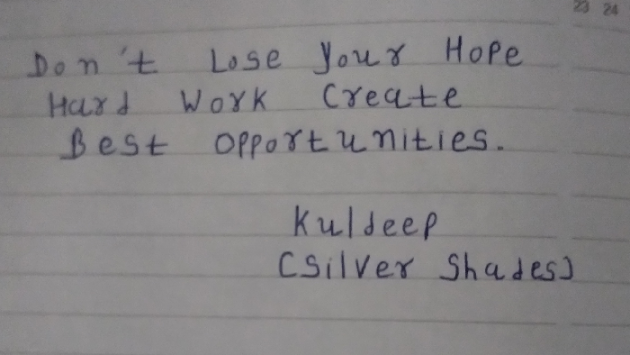 23 24
Don't Lose Your Hope
Hard Work Create
Best Opportunities.
Kuldeep
(Silver Shades)